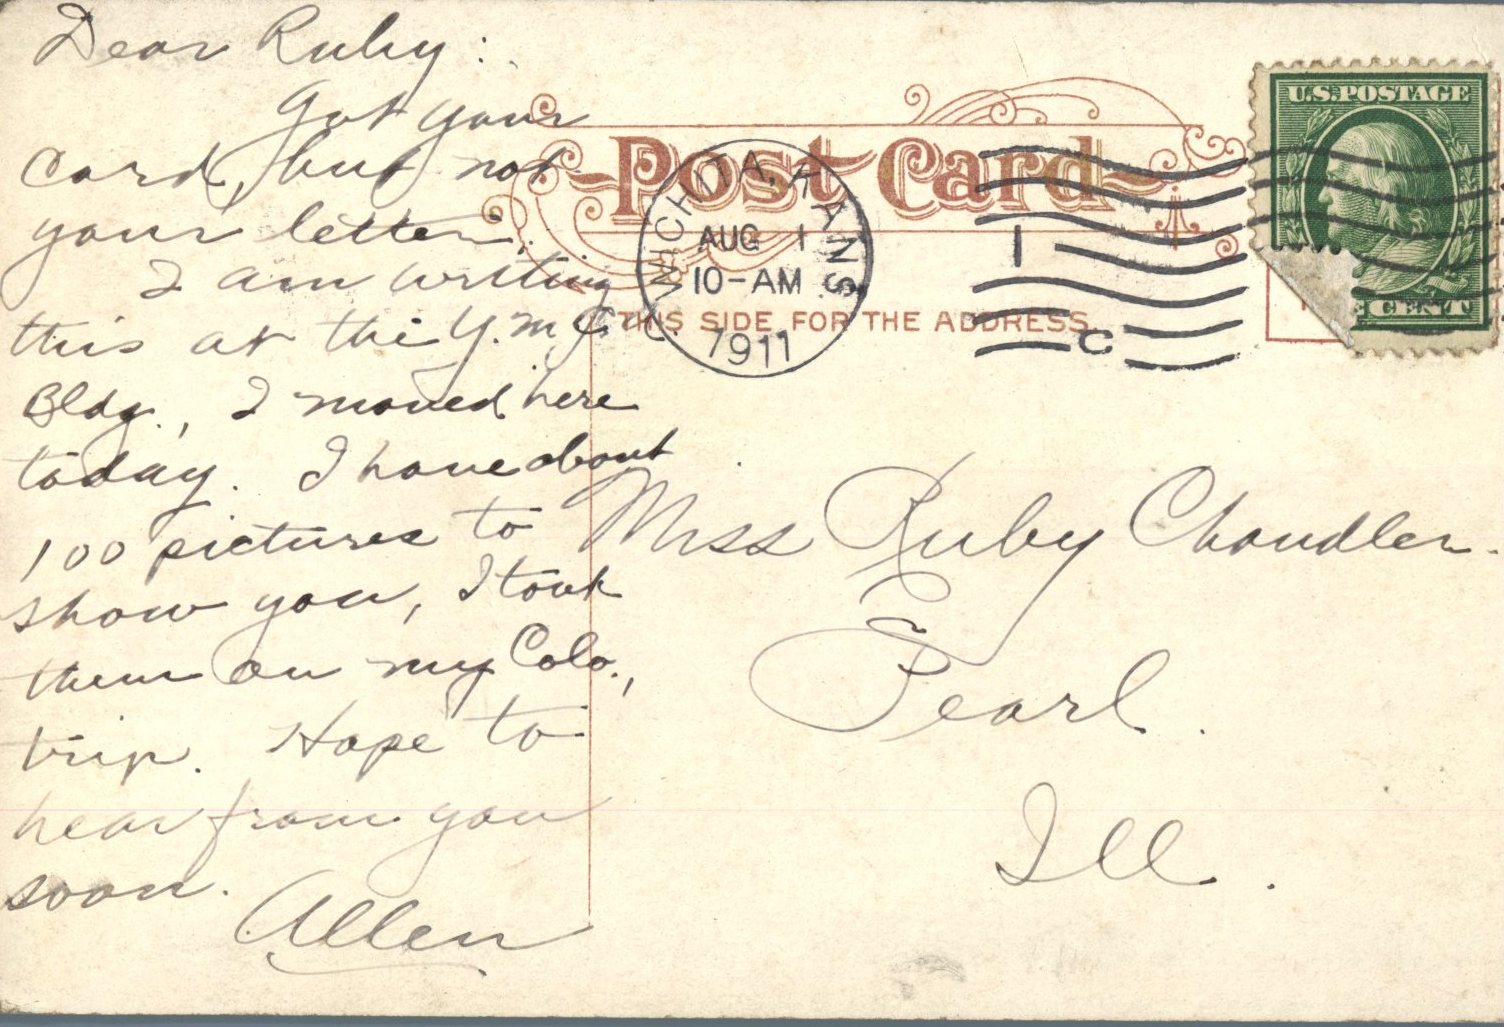 Dear Ruby:
Got your
card, but not
your letter.
I am writing
this at the Y.M.C.A.
Bldg., I moved here
today. I have about
100 pictures to
show you, I took
them on my Colo.,
trip. Hope to
hear from you
soon.
Allen
Post Card
THIS SIDE FOR THE ADDRESS
WICHITA, KANS.
AUG 1
10-AM
1911
1
C
U.S.POSTAGE
CENT
Miss Ruby Chandler.
Pearl.
Ill.